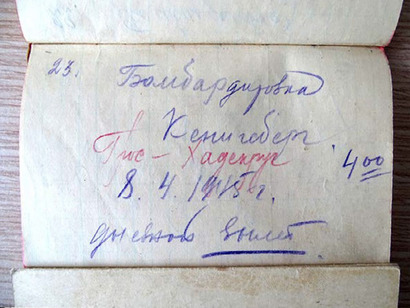 23. Бомбардировка
Кенигсберг.
Гросс-Хадекруг 4 00
8. 4. 1945 г.
дневной вылет